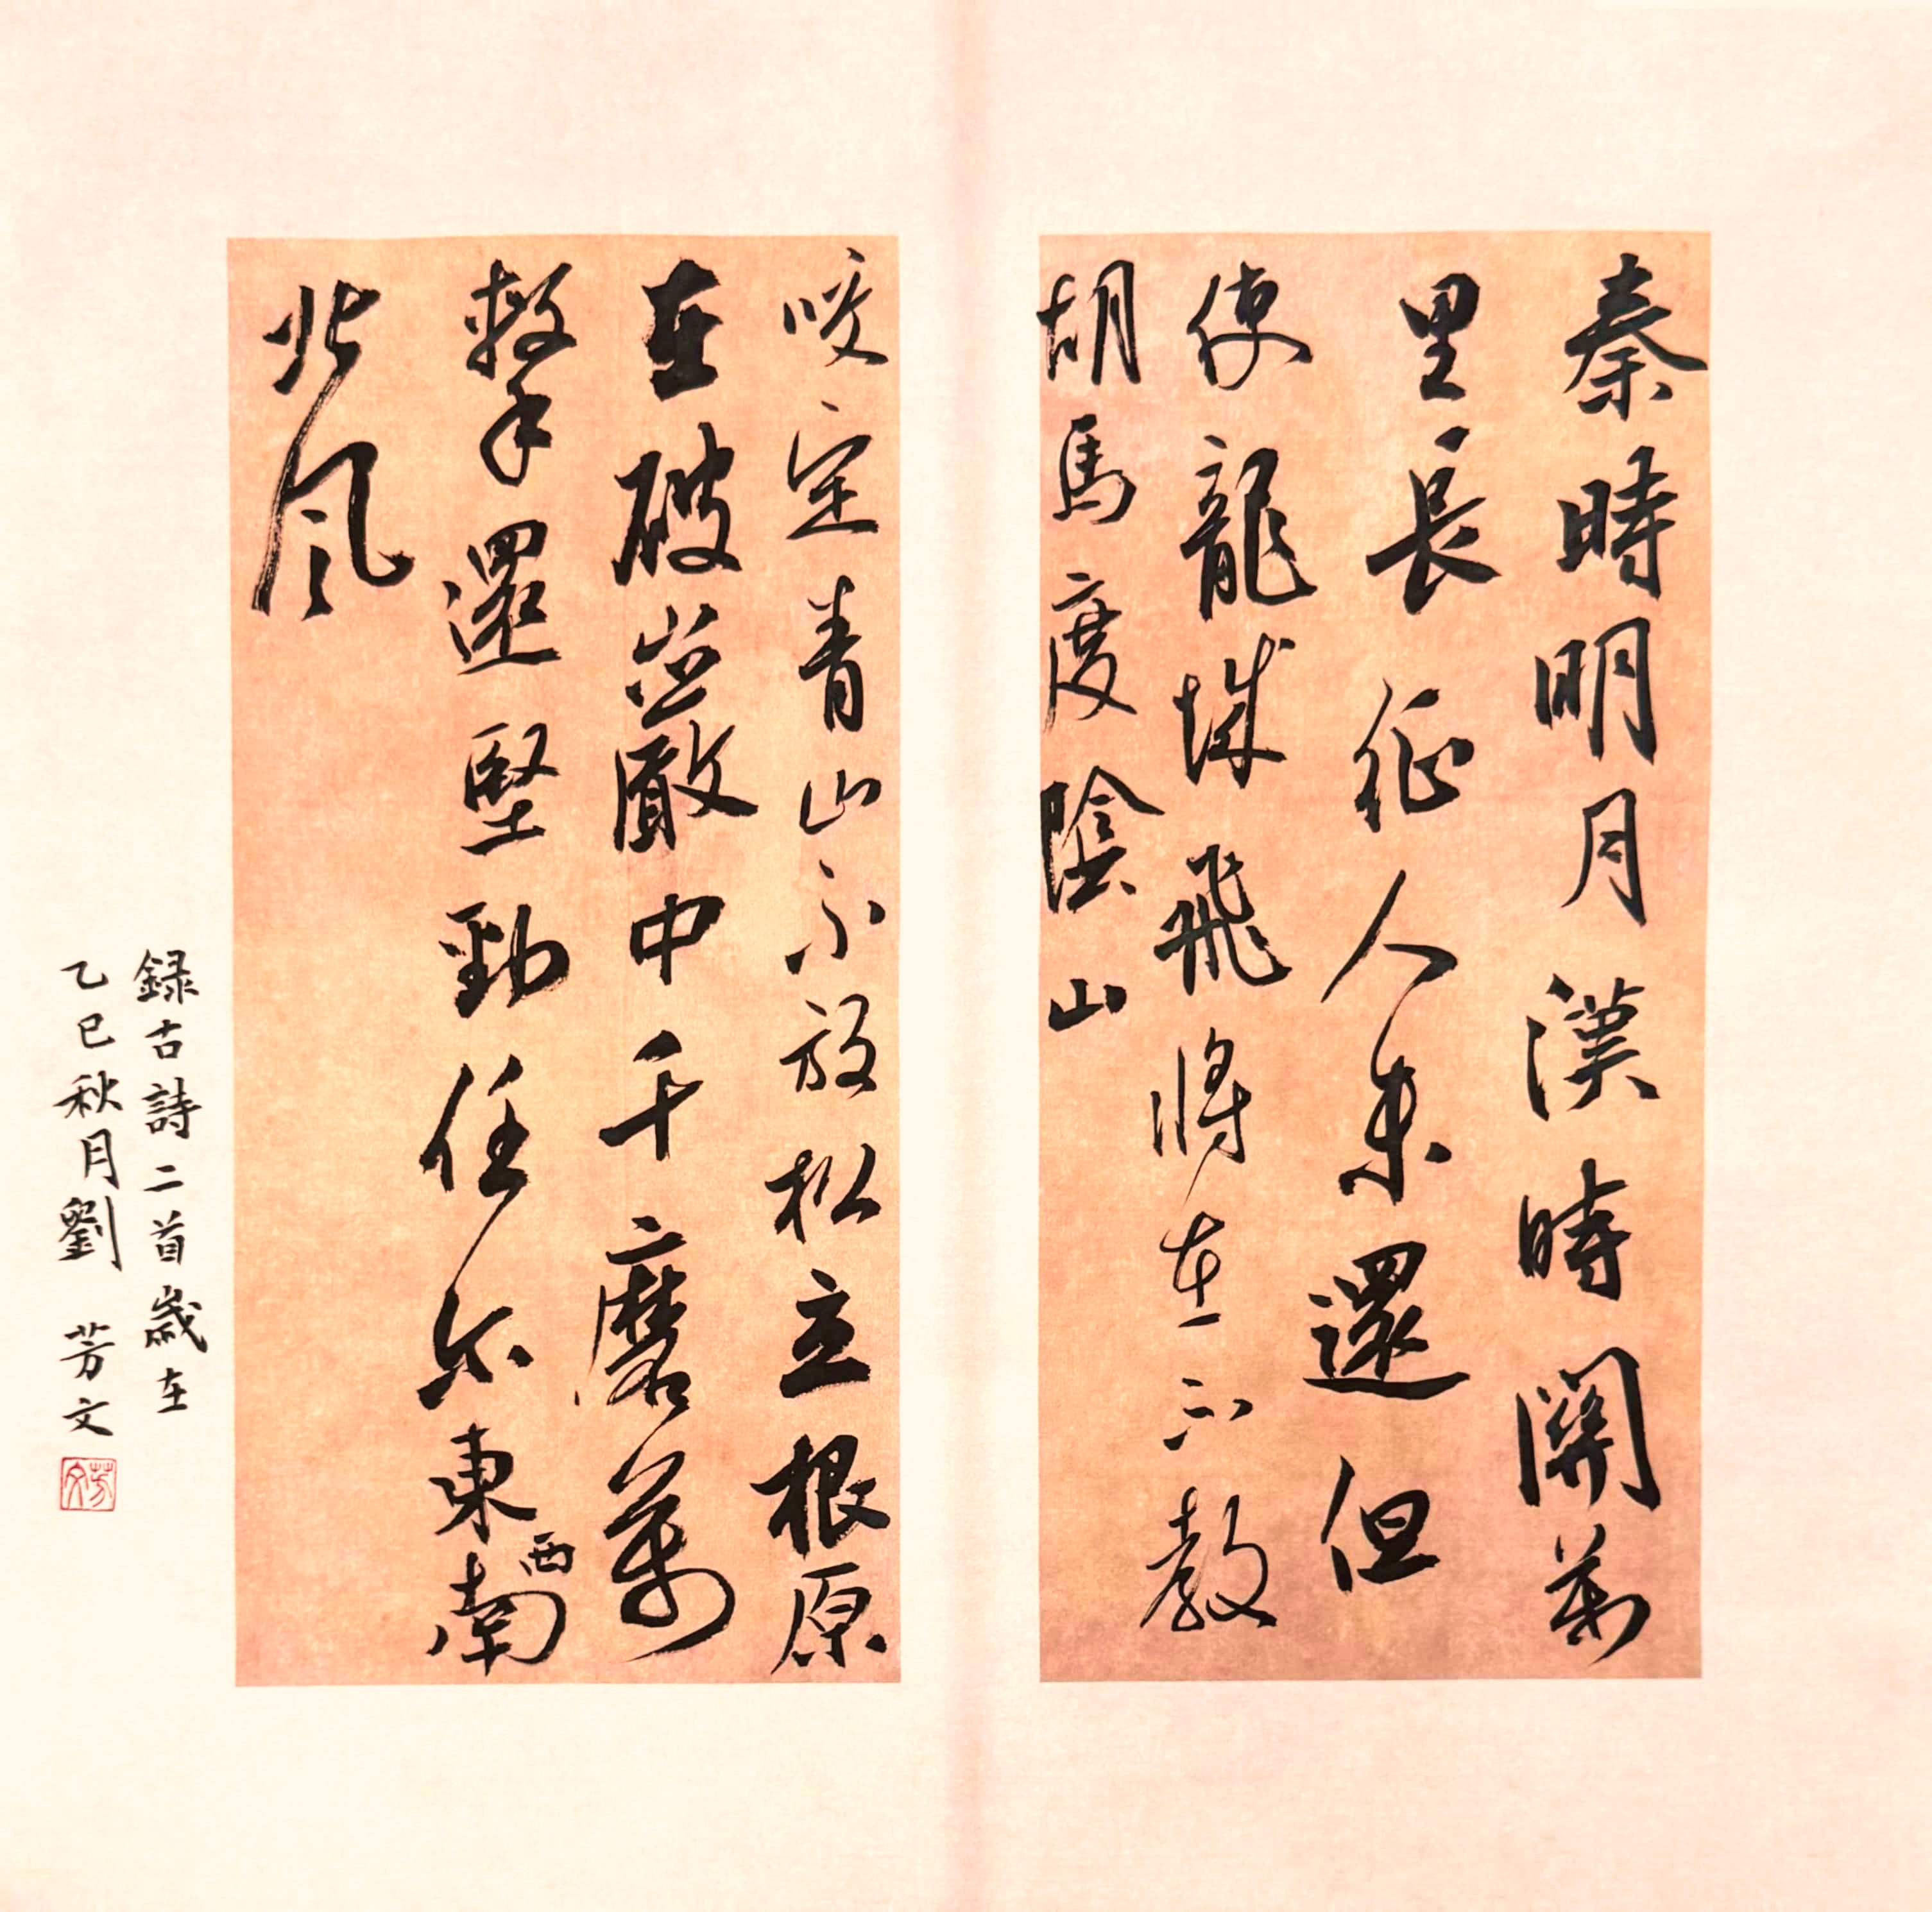 秦時明月漢時關萬
里長征人未還但
使龍城飛將在不教
胡馬度陰山
咬定青山不放松立根原
在破巖中千磨萬
擊還堅勁任尔東西南
北風
録古詩二首歲在
乙巳秋月劉芳文
芳文